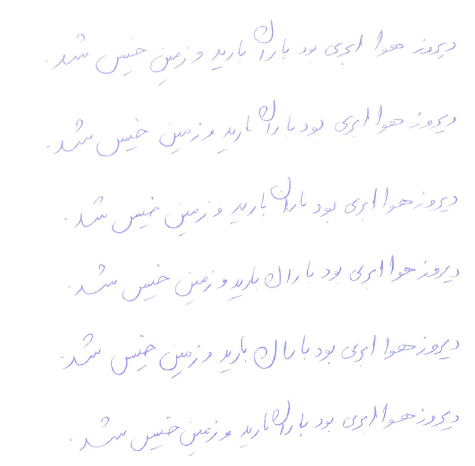 دیروز هوا ابری بود باران بارید و زمین خیس شد.
دیروز هوا ابری بود باران بارید و زمین خیس شد.
دیروز هوا ابری بود باران بارید و زمین خیس شد.
دیروز هوا ابری بود باران بارید و زمین خیس شد.
دیروز هوا ابری بود باران بارید و زمین خیس شد.
دیروز هوا ابری بود باران بارید و زمین خیس شد.